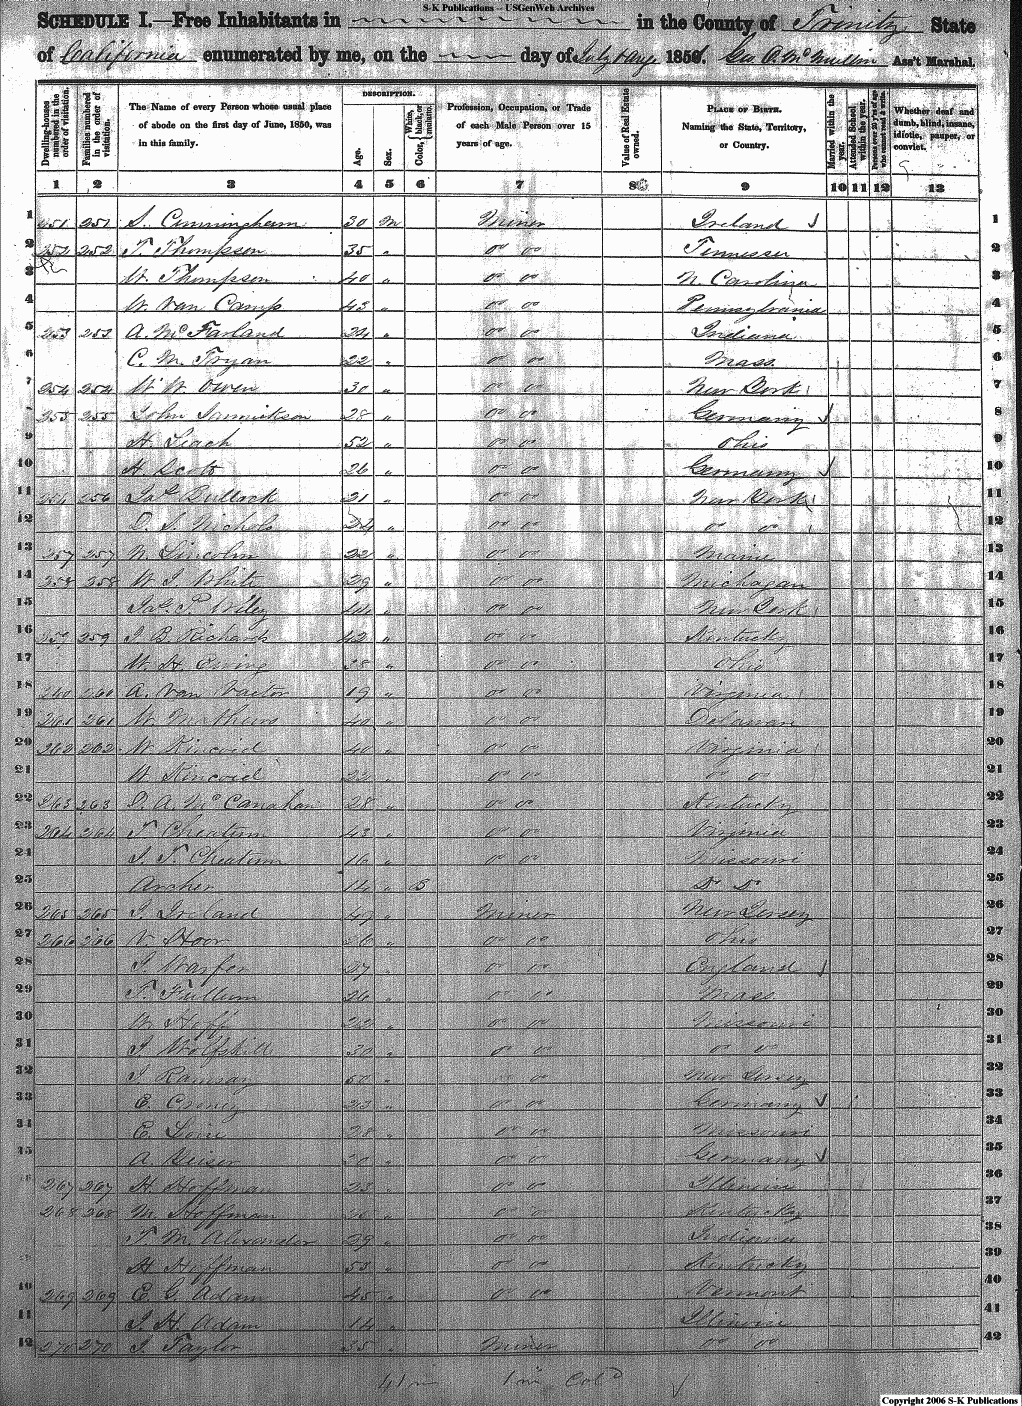 S-K Publications – USGenWeb Archives
SCHEDULE I.—Free Inhabitants in in the County of Trinity State
of California enumerated by me, on the day of July & Aug 1850. Geo. O. McMullin Ass't Marshal.
Dwelling-houses numbered in the order of visitation.
Families numbered in the order of visitation.
The Name of every Person whose usual place of abode on the first day of June, 1850, was in this family.
DESCRIPTION.
Age.
Sex.
Color, White, black, or mulatto.
Profession, Occupation, or Trade of each Male Person over 15 years of age.
Value of Real Estate owned.
PLACE OF BIRTH. Naming the State, Territory, or Country.
Married within the year.
Attended School within the year.
Persons over 20 y'rs of age who cannot read & write.
Whether deaf and dumb, blind, insane, idiotic, pauper, or convict.
1 2 3 4 5 6 7 8 9 10 11 12 13
1 251 251 S. Cunningham 30 M Miner Ireland 1
2 252 252 T. Thompson 35 " do do Tennessee 2
3 W. Thompson 40 " do do N Carolina 3
4 W. Van Camp 43 " do do Pennsylvania 4
5 253 253 A. McFarland 24 " do do Indiana 5
6 C. M. Tryan 22 " do do Mass. 6
7 254 254 W. W. Owen 30 " do do New York 7
8 255 255 John 28 " do do Germany 8
9 H. Leach 52 " do do Ohio 9
10 H. Scott 26 " do do Germany 10
11 256 256 Jas. Bullock 21 " do do New York 11
12 D. S. Nichols 24 " do do do do 12
13 257 257 N. Lincoln 22 " do do Maine 13
14 258 258 W. J. White 29 " do do Michagan 14
15 Jas. P. Wiley 44 " do do New York 15
16 259 259 J. B. Richards 42 " do do Kentucky 16
17 W. H. Ewing 28 " do do Ohio 17
18 260 260 A. Van Vactor 19 " do do Virginia 18
19 261 261 W. Mathews 40 " do do Delaware 19
20 262 262 W. Kincoid 40 " do do Virginia 20
21 W. Kincoid 22 " do do do do 21
22 263 263 D. A. McCanahan 28 " do do Kentucky 22
23 264 264 T. Cheatum 43 " do do Virginia 23
24 J. T. Cheatum 16 " do do Missouri 24
25 Archer 14 " B Do Do 25
26 265 265 J. Ireland 49 " Miner New Jersey 26
27 266 266 V. Hoor 26 " do do Ohio 27
28 J. Warfer 27 " do do England 28
29 T. Fullum 26 " do do Mass 29
30 W. Hoff 22 " do do Missouri 30
31 J. Wolfskill 30 " do do do do 31
32 J. Ramsay 50 " do do New Jersey 32
33 E. Croney 23 " do do Germany 33
34 E. Loire 28 " do do Missouri 34
35 A. Keiser 30 " do do Germany 35
267 267 H. Hoffman 23 " do do Illinois 36
268 268 M. Hoffman " do do Kentucky 37
T. M. Alexander 29 " do do Indiana 38
H. Hoffman 53 " do do Kentucky 39
40 269 269 E. G. Adam 45 " do do Vermont 40
41 J. H. Adam 14 " Illinois 41
42 270 270 J. Taylor 35 " Miner do do 42
41 m 1 m Cold
Copyright 2006 S-K Publications